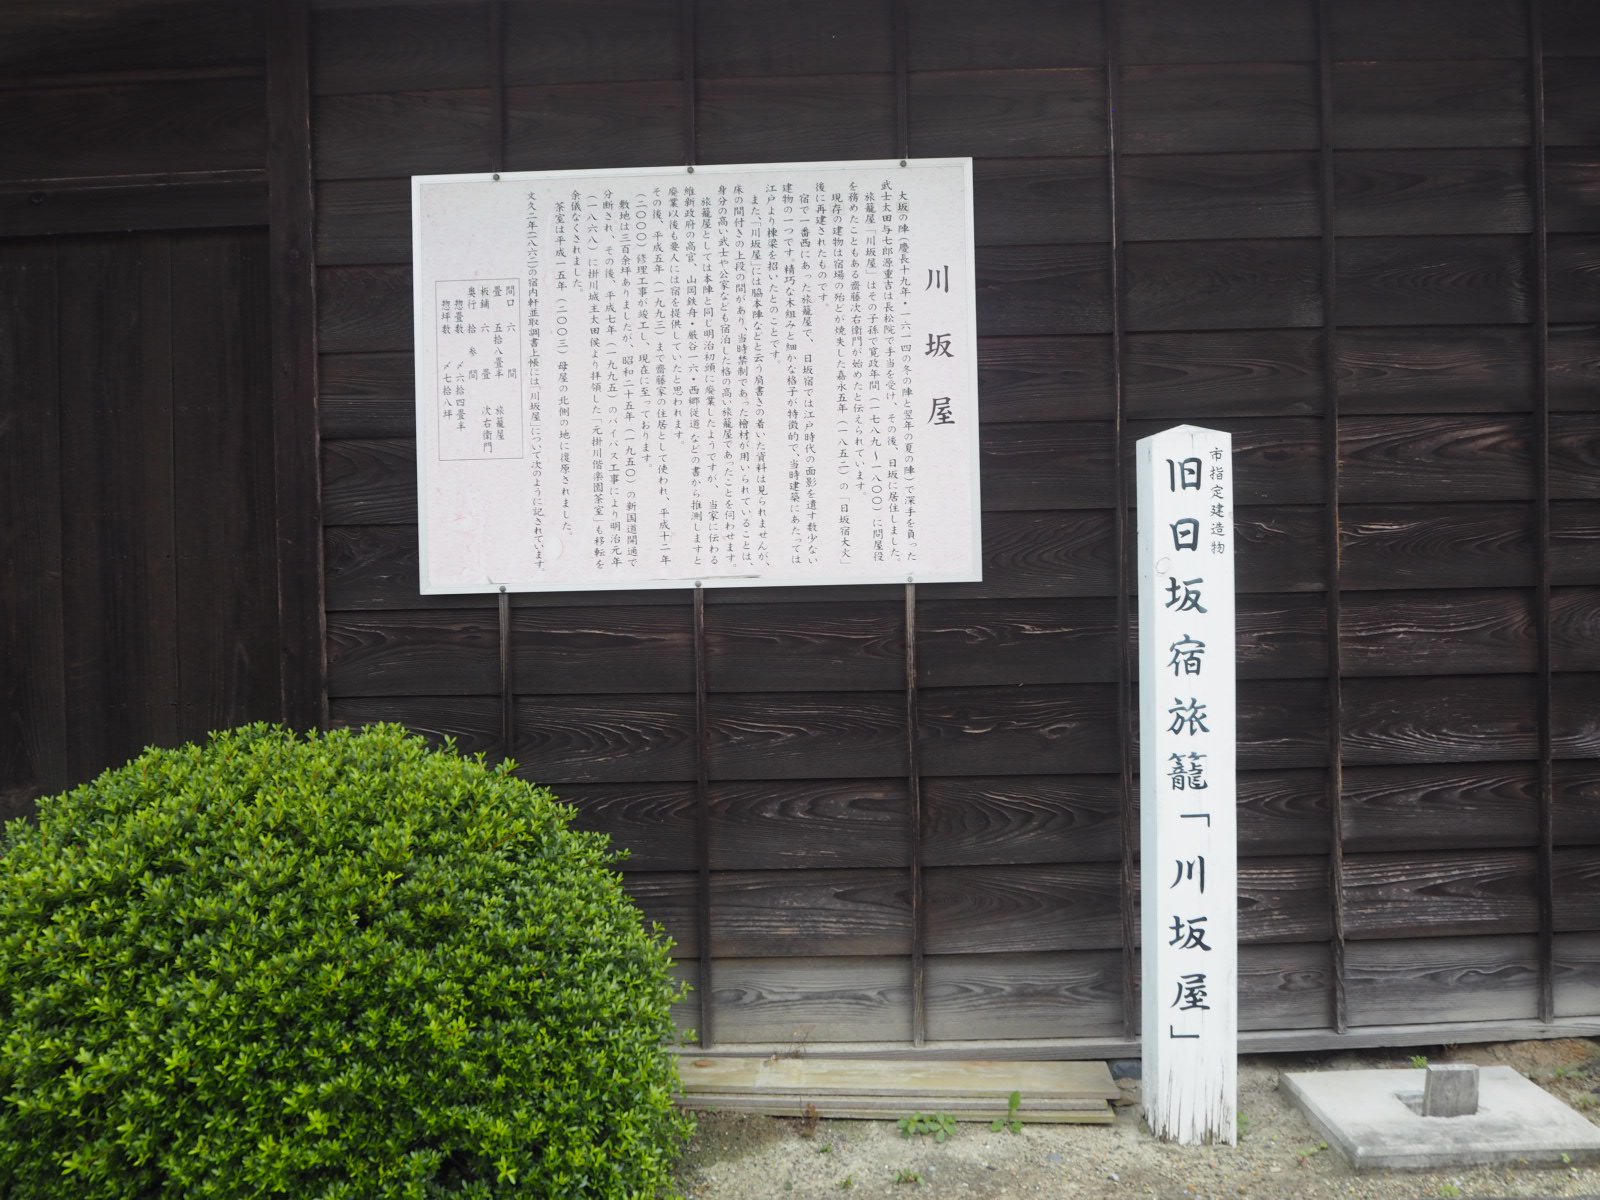 川坂屋
大坂の陣(慶長十九年・一六一四の冬の陣と翌年の夏の陣)で深手を負った
武士太田与七郎源重吉は長松院で手当を受け、その後、日坂に居住しました。
旅籠屋「川坂屋」はその子孫で寛政年間(一七八九～一八〇〇)に問屋役
を務めたこともある齋藤次右衛門が始めたと伝えられています。
現存の建物は宿場の殆どが焼失した嘉永五年(一八五二)の「日坂宿大火」
後に再建されたものです。
宿で一番西にあった旅籠屋で、日坂宿では江戸時代の面影を遺す数少ない
建物の一つです。精巧な木組みと細かな格子が特徴的で、当時建築にあたっては
江戸より棟梁を招いたとのことです。
また、「川坂屋」には脇本陣などと云う肩書きの着いた資料は見られませんが、
床の間付きの上段の間があり、当時禁制であった檜材が用いられていることは、
身分の高い武士や公家なども宿泊した格の高い旅籠屋であったことを伺わせます。
旅籠屋としては本陣と同じ明治初頭に廃業したようですが、当家に伝わる
維新政府の高官、山岡鉄舟・巌谷一六・西郷従道などの書から推測しますと
廃業以後も要人には宿を提供していたと思われます。
その後、平成五年(一九九三)まで齋藤家の住居として使われ、平成十二年
(二〇〇〇)修理工事が竣工し、現在に至っております。
敷地は三百余坪ありましたが、昭和二十五年(一九五〇)の新国道開通で
分断され、その後、平成七年(一九九五)のバイパス工事により明治元年
(一八六八)に掛川城主太田侯より拝領した「元掛川偕楽園茶室」も移転を
余儀なくされました。
茶室は平成一五年(二〇〇三)母屋の北側の地に復原されました。
文久二年(一八六二)の宿内軒並取調書上帳には「川坂屋」について次のように記されています。
間口 六 間
畳 五拾八畳半 旅籠屋
板鋪 六 畳 次右衛門
奥行 拾 参 間
惣畳数 〆六拾四畳半
惣坪数 〆七拾八坪
市指定建造物
旧日坂宿旅籠「川坂屋」